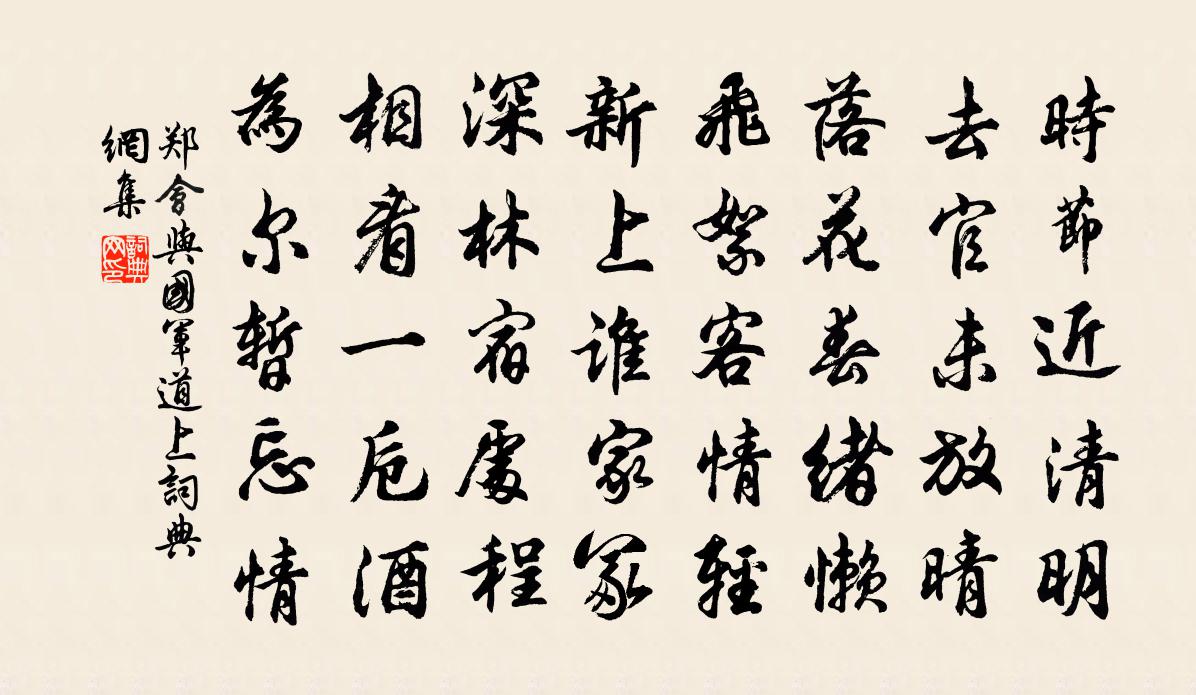 時節近清明
去官未放晴
落花春緒懶
飛絮客情輕
新上誰家冢
深林宿處程
相看一卮酒
為尔暫忘情
郑會與國軍道上詞典
網集
詞典网印